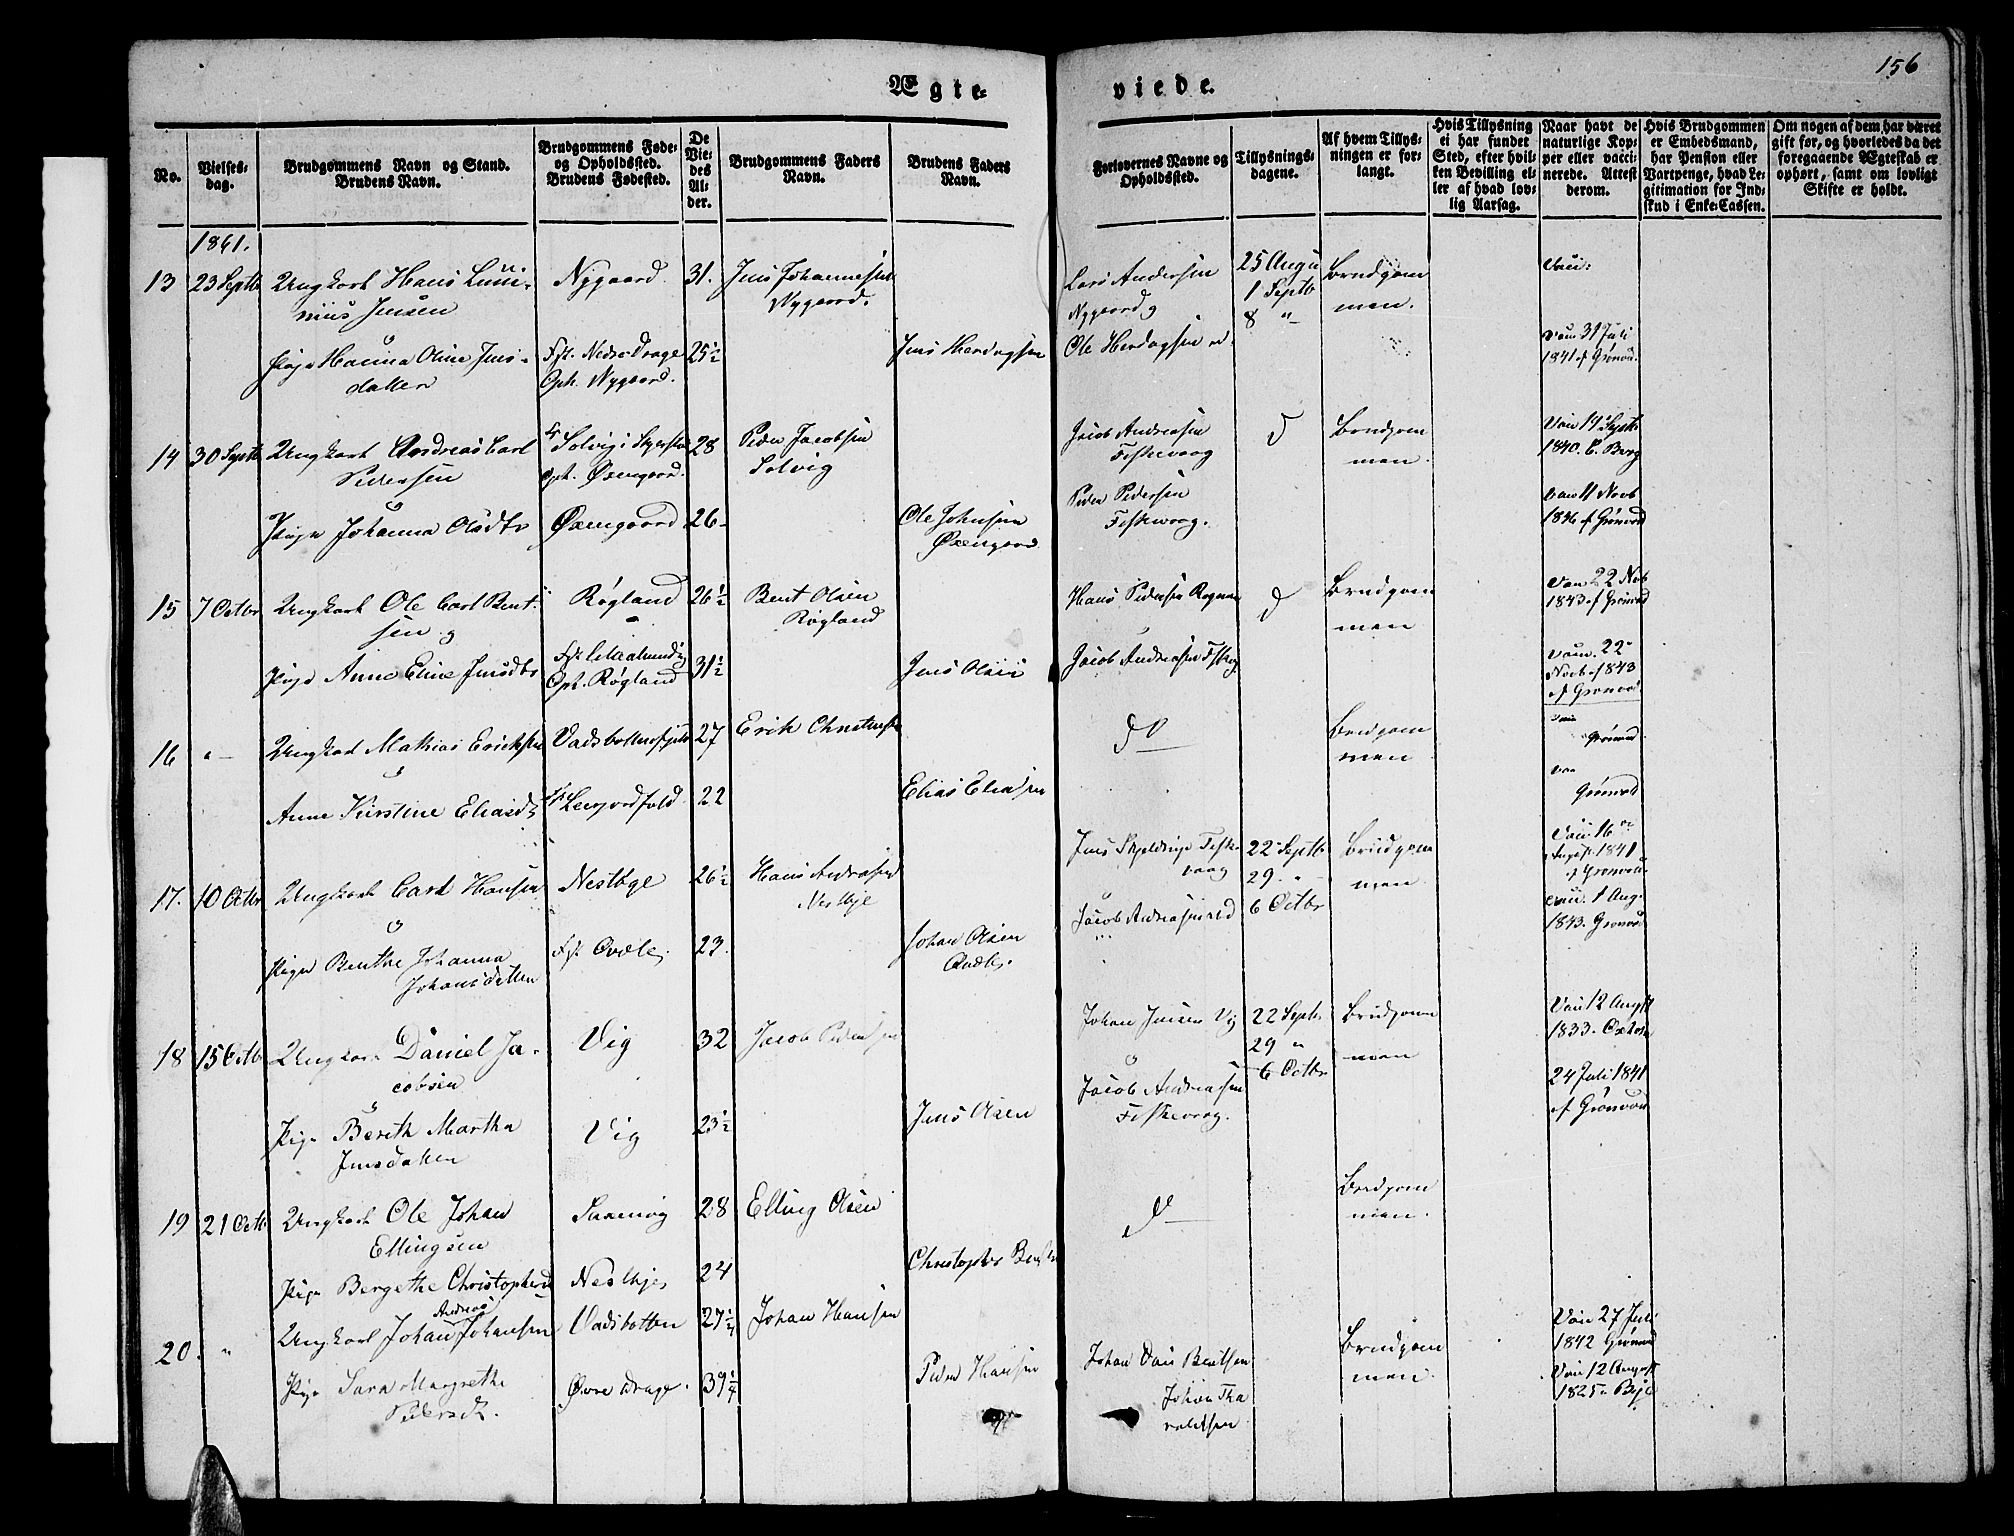 156
Ægte-
viede.
No.
Vielses-
dag.
Brudgommens Navn og Stand.
Brudens Navn.
Brudgommens Føde-
og Opholdssted.
Brudens Fødested.
De
Vie-
des
Al-
der.
Brudgommens Faders
Navn.
Brudens Faders
Navn.
Forlovernes Navne og
Opholdssted.
Tillysnings-
dagene.
Af hvem Tillys-
ningen er for-
langt.
Hvis Tillysning
ei har fundet
Sted, efter hvil-
ken Bevilling el-
ler af hvad lov-
lig Aarsag.
Naar havt de
naturlige Kop-
per eller vacci-
nerede. Attest
derom.
Hvis Brudgommen
er Embedsmand,
har Pension eller
Vartpenge, hvad Le-
gitimation for Ind-
skud i Enke-Cassen.
Om nogen af dem har været
gift før, og hvorledes da det
foregaaende Ægteskab er
ophørt, samt om lovligt
Skifte er holdt.
1861.
13 23 Septb Ungkarl Hans
Jensen
Nygaard 31. Jens Johannesen
Nygaard.
Lars Andersen
Nygaard og
25 Augu
1 Septb
8 "
Brudgom
men.
Vac:
Pige Hanna Oline Jens-
datter
Fst. Nedre Drage
Oph. Nygaard.
25½ Jens Hendagsen
Ole Hendagsen
Vac 31 Juli
1841 af Grønvd.
14 30 Septb Ungkarl Andreas Carl
Pedersen
Solvig i
Oph. Øxengaard.
28 Peder Jacobsen
Solvig
Jacob Andreasen
Fiskevaag
Brudgom
men.
Vac 19 Septb
1840. C. Berg
Pige Johanna Olsdtr Øxengaard 26
Ole Johnsen
Øxengaard
Peder Pedersen
Fiskevaag.
Vac 11 Novb
1836 af Grønvd
15 7 Octbr Ungkarl Ole Carl Bent-
sen og
Røgland 26½ Bent Olsen
Røgland
Hans Pedersen Rognan
Brudgom
men
Vac 22 Nvb
1843 af Grønvd
Pige Anne Eline Jensdtr
Oph. Røgland
31½ Jens Olsen
Jacob Andreasen Fiskvg
Vac. 22
Novb 1843
af Grønvd
16 " Ungkarl Mathias Eriksen Vadsbottenfjeld 27 Erik Christensen
do
Brudgom
men
Vac
Grønvd
Anne Kirstine Eliasdt 22 Elias Eliasen
Vac
Grønvd
17. 10 Octbr Ungkarl Carl Hansen
Nestbye 26½ Hans Andreasen
Nestbye
Jens Skjeldrup Fiske-
vaag
22 Septb
29. "
6 Octbr
Brudgom
men.
Vac 16
August 1841
af Grønvd
Pige Benthe Johanna
Johansdatter
Fst. Qvale. 23. Johan Olsen
Qvale.
Jacob Andreasen
Vac. 1 Aug.
1843. Grønvd
18 15 Octb Ungkarl Daniel Ja-
cobsen
Vig 32 Jacob Pedersen
Johan Jensen Vig
22 Septr
29 "
6 Octbr
Brudgom
men
Vac 12 Augst
1833.
Pige Berith Martha
Jensdatter
Vig 23½ Jens Olsen
Jacob Andreassen
Fiskevaag.
24 Juli 1841
af Grønvd
19 21 Octb Ungkarl Ole Johan
Ellingsen
28 Elling Olsen
do
Brudgom
men.
Pige Bergethe Christophersd Nestbye 24 Christopher Bentsen
20. " Ungkarl Johan Andreas Johansen Vadsbotten 27¼ Johan Hansen
Johan Bentsen
Brudgom
men.
Vac 27 Juli
1842 Grønvd
Pige Sara Margrethe
Pedersdt.
Øvre Drage. 39¼ Peder Hansen
Johan Tha
raldsen
Vac 12 August
1825